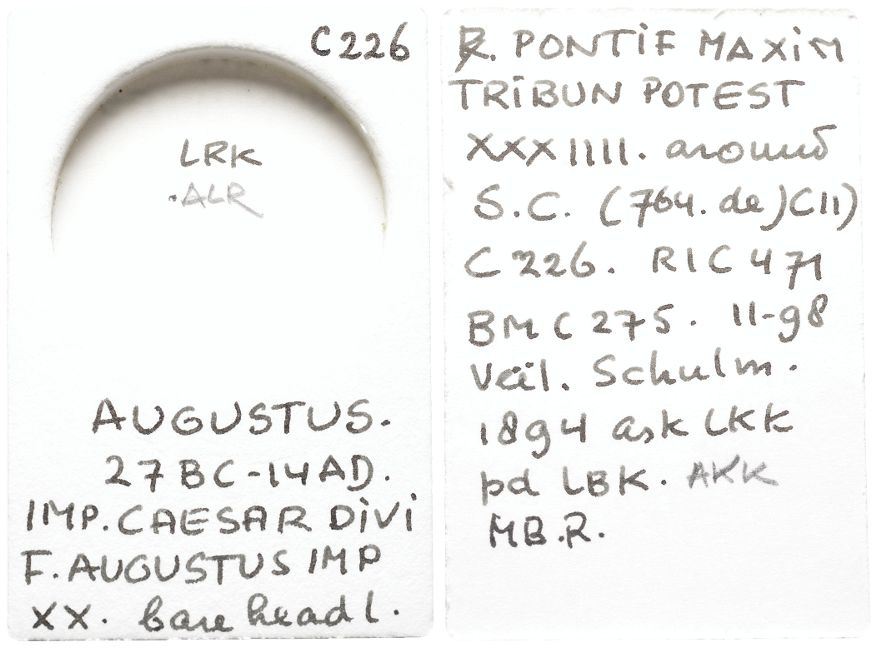 C226
LRK
.ALR
AUGUSTUS.
27BC-14AD.
IMP. CAESAR DIVI
F. AUGUSTUS IMP
XX. bare head l.
R. PONTIF MAXIM
TRIBUN POTEST
XXXIIII. around
S.C. (764. de)C11)
C 226. RIC 471
BMC 275. 11-98
Veil. Schulm.
1894 ask LKK
pd LBK. AKK
MB.R.